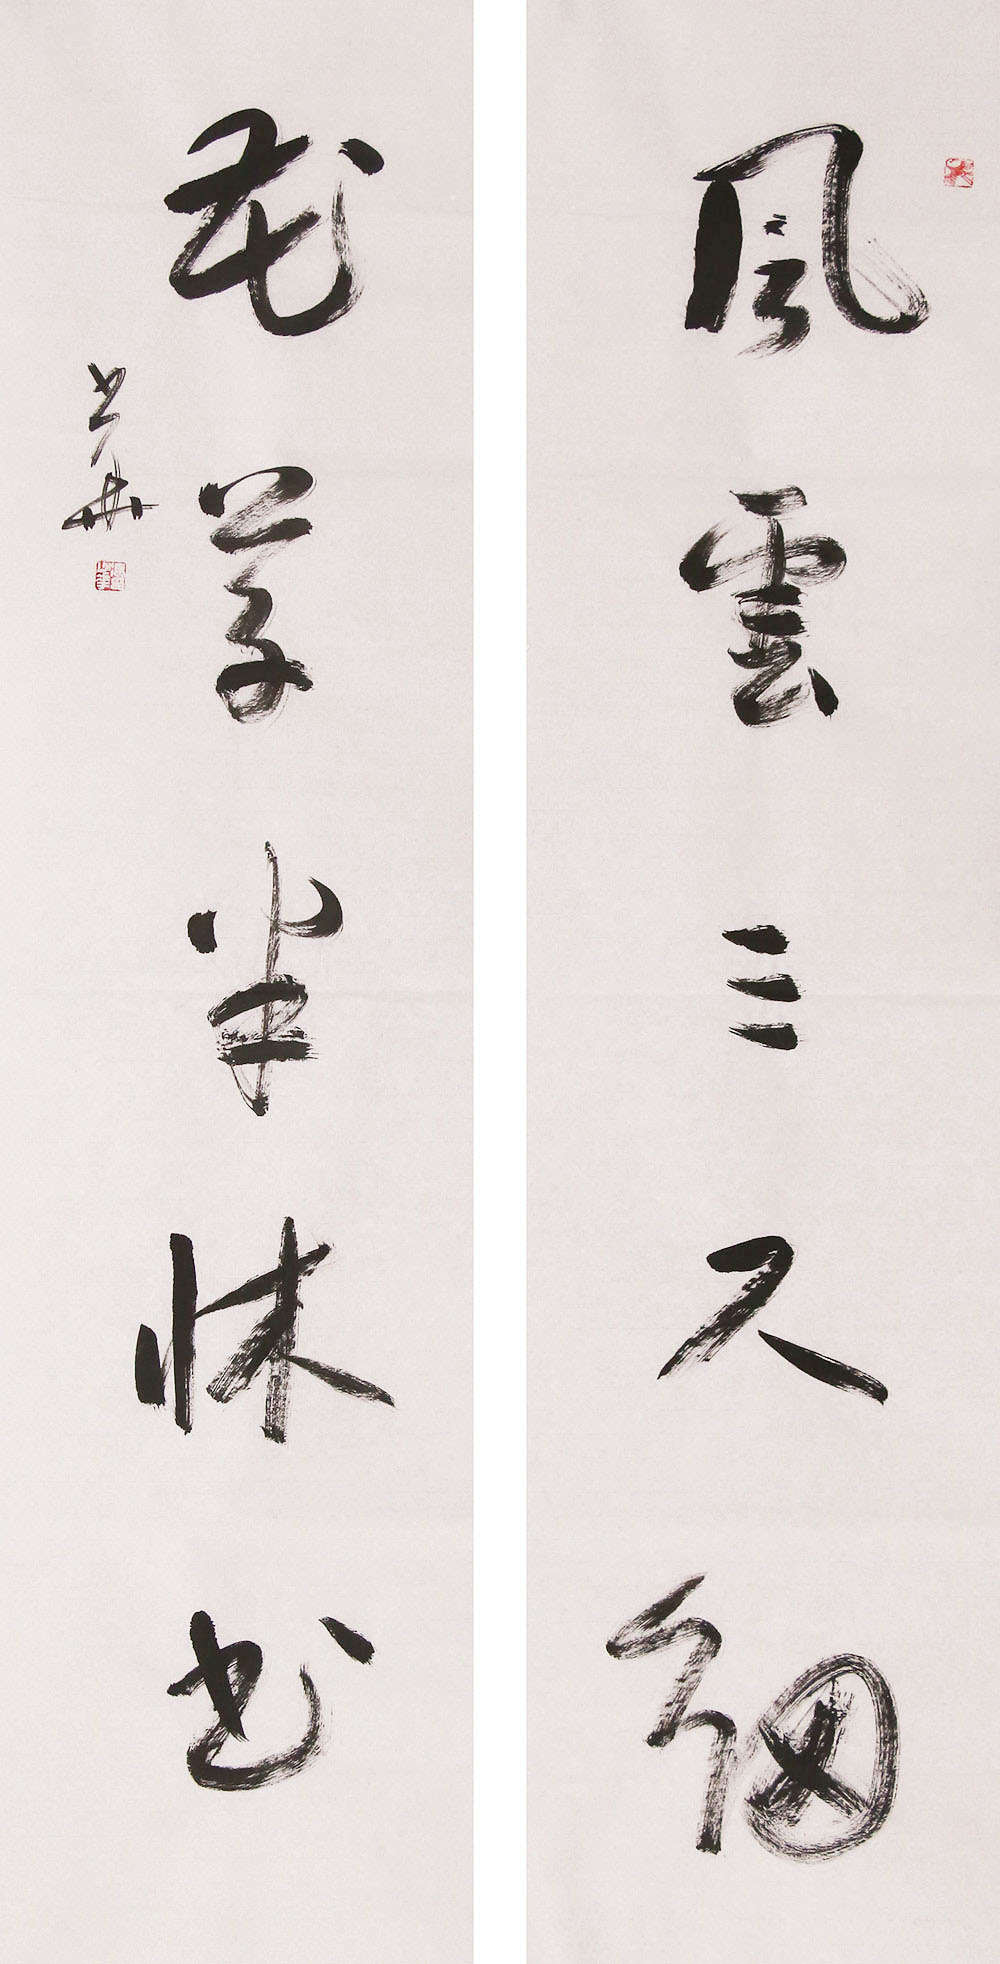 風雲三尺劍
花草半牀書